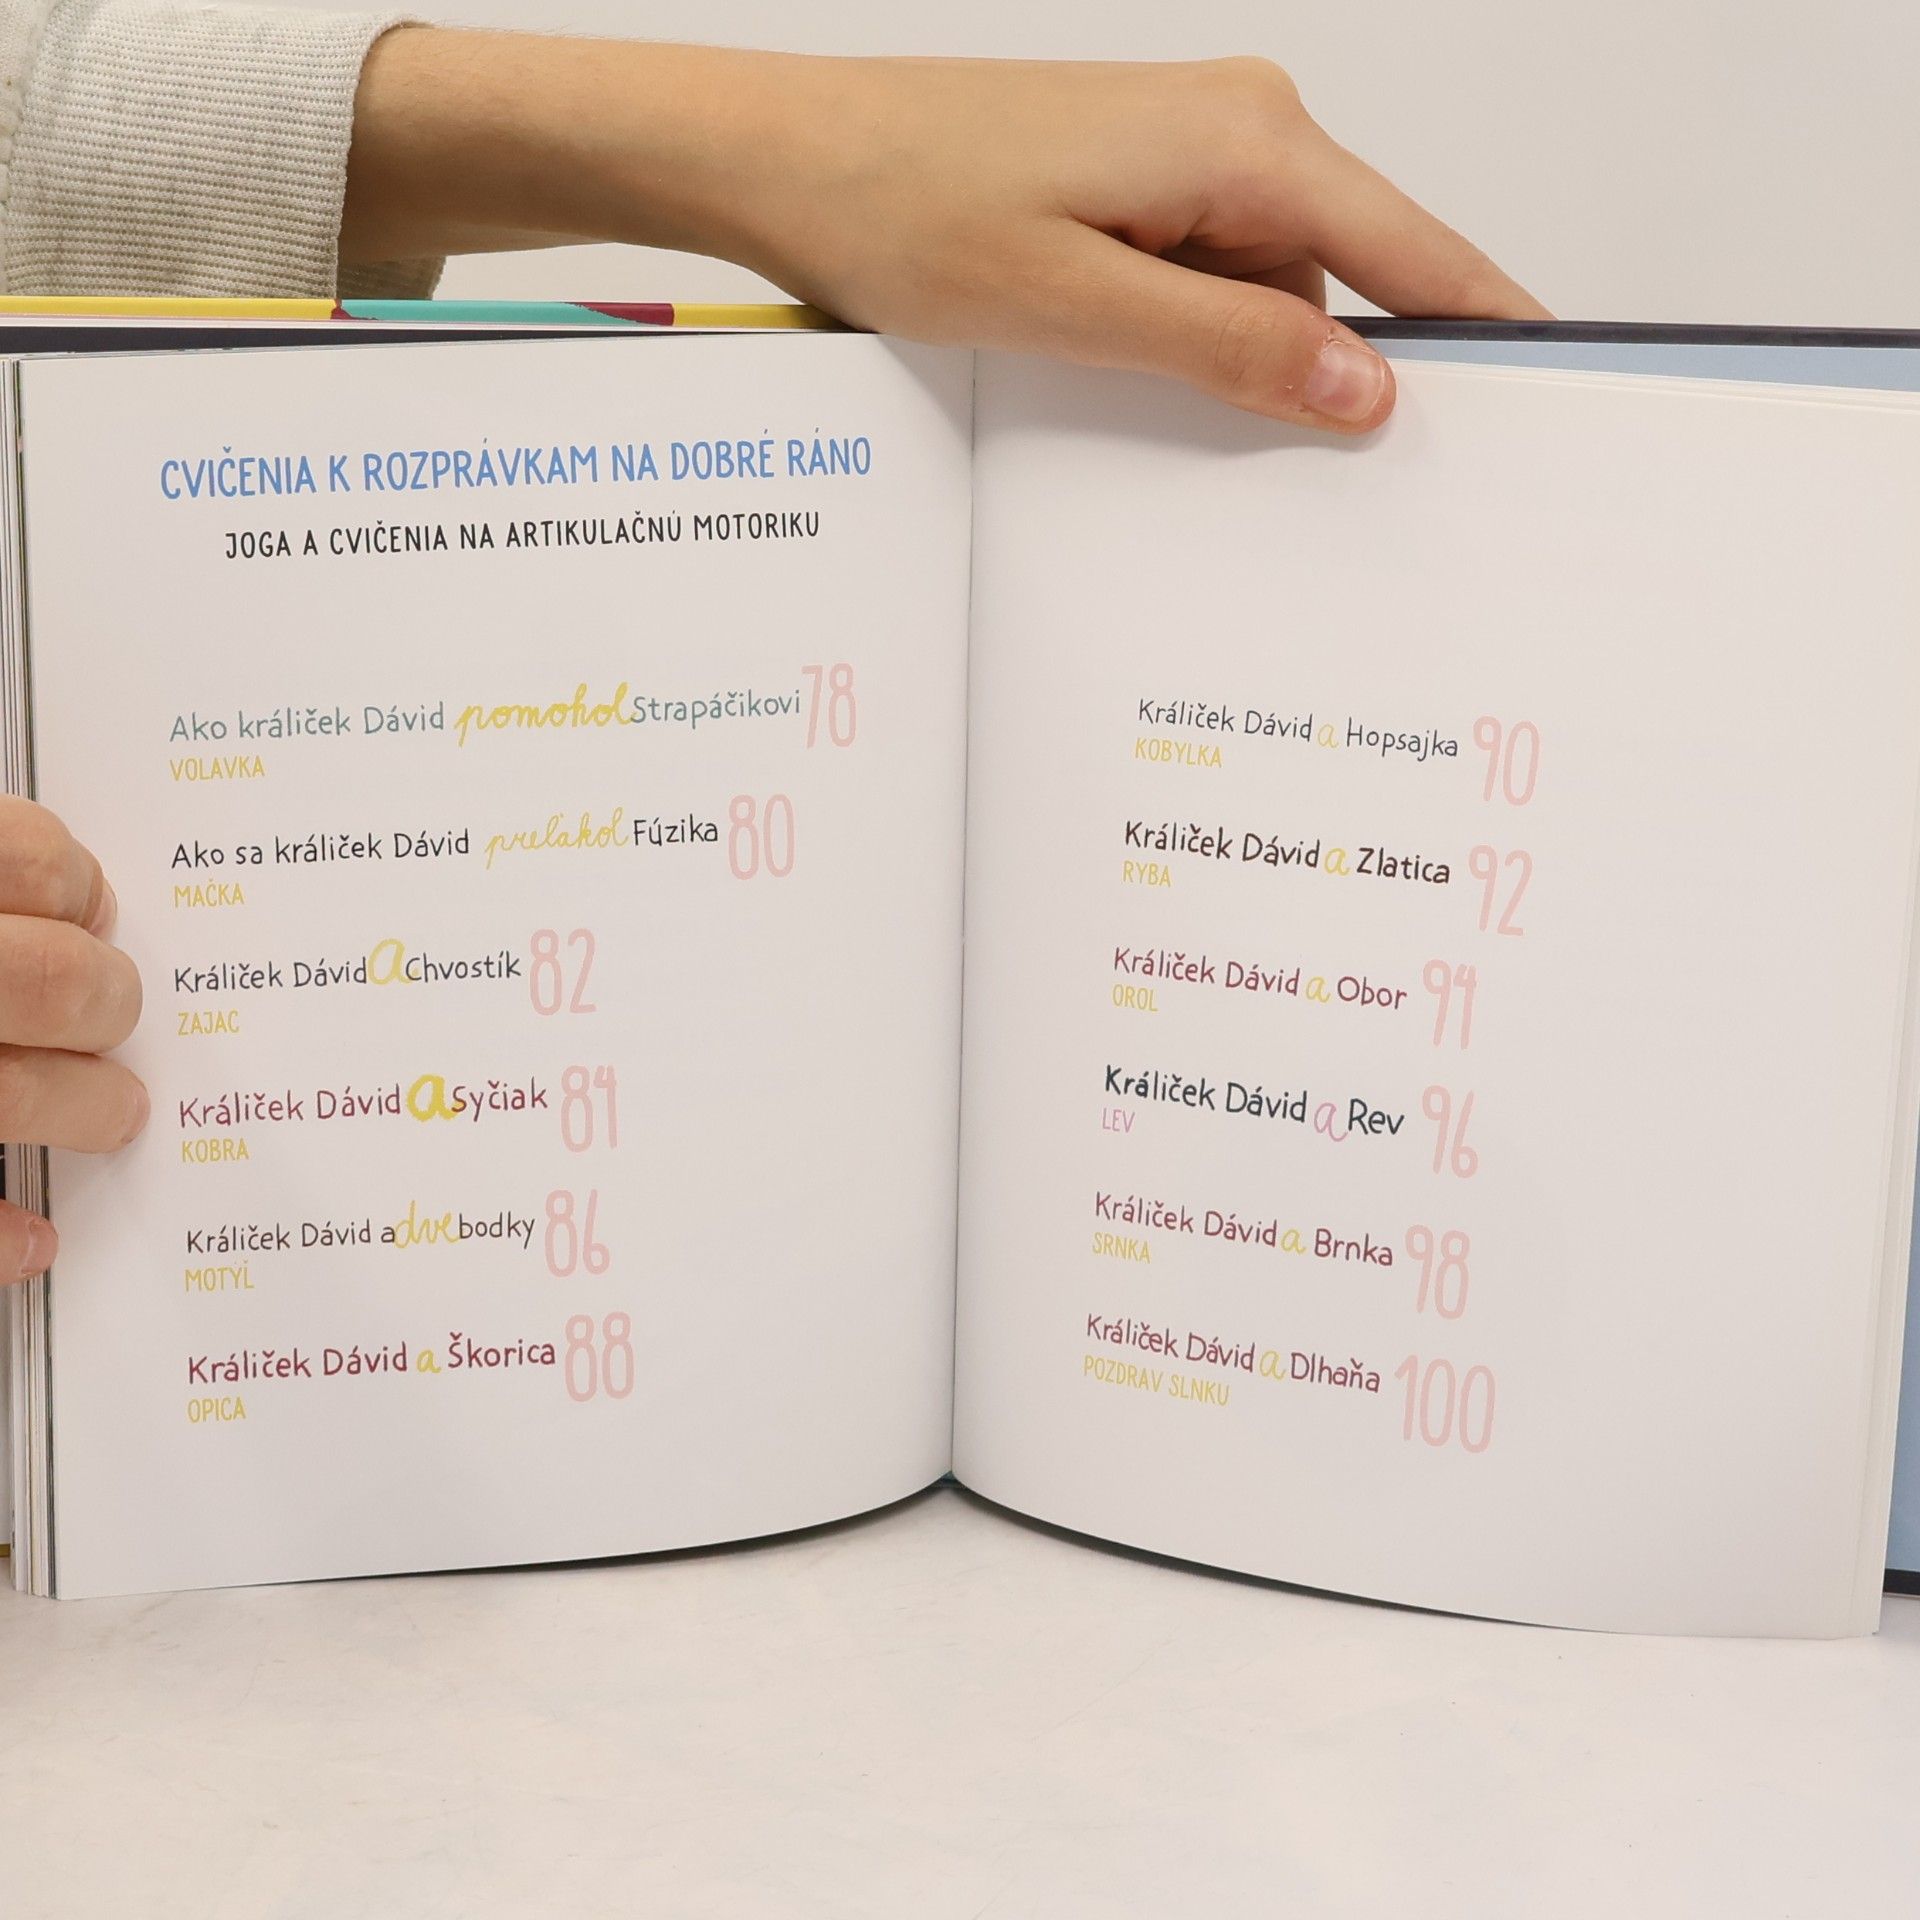 CVIČENIA K ROZPRÁVKAM NA DOBRÉ RÁNO
JOGA A CVIČENIA NA ARTIKULAČNÚ MOTORIKU
Ako králiček Dávid pomohol Strapáčikovi 78
VOLAVKA
Ako sa králiček Dávid preľakol Fúzika 80
MAČKA
Králiček Dávid a Chvostík 82
ZAJAC
Králiček Dávid a Syčiak 84
KOBRA
Králiček Dávid a dve bodky 86
MOTÝĽ
Králiček Dávid a Škorica 88
OPICA
Králiček Dávid a Hopsajka 90
KOBYLKA
Králiček Dávid a Zlatica 92
RYBA
Králiček Dávid a Obor 94
OROL
Králiček Dávid a Rev 96
LEV
Králiček Dávid a Brnka 98
SRNKA
Králiček Dávid a Dlhaňa 100
POZDRAV SLNKU